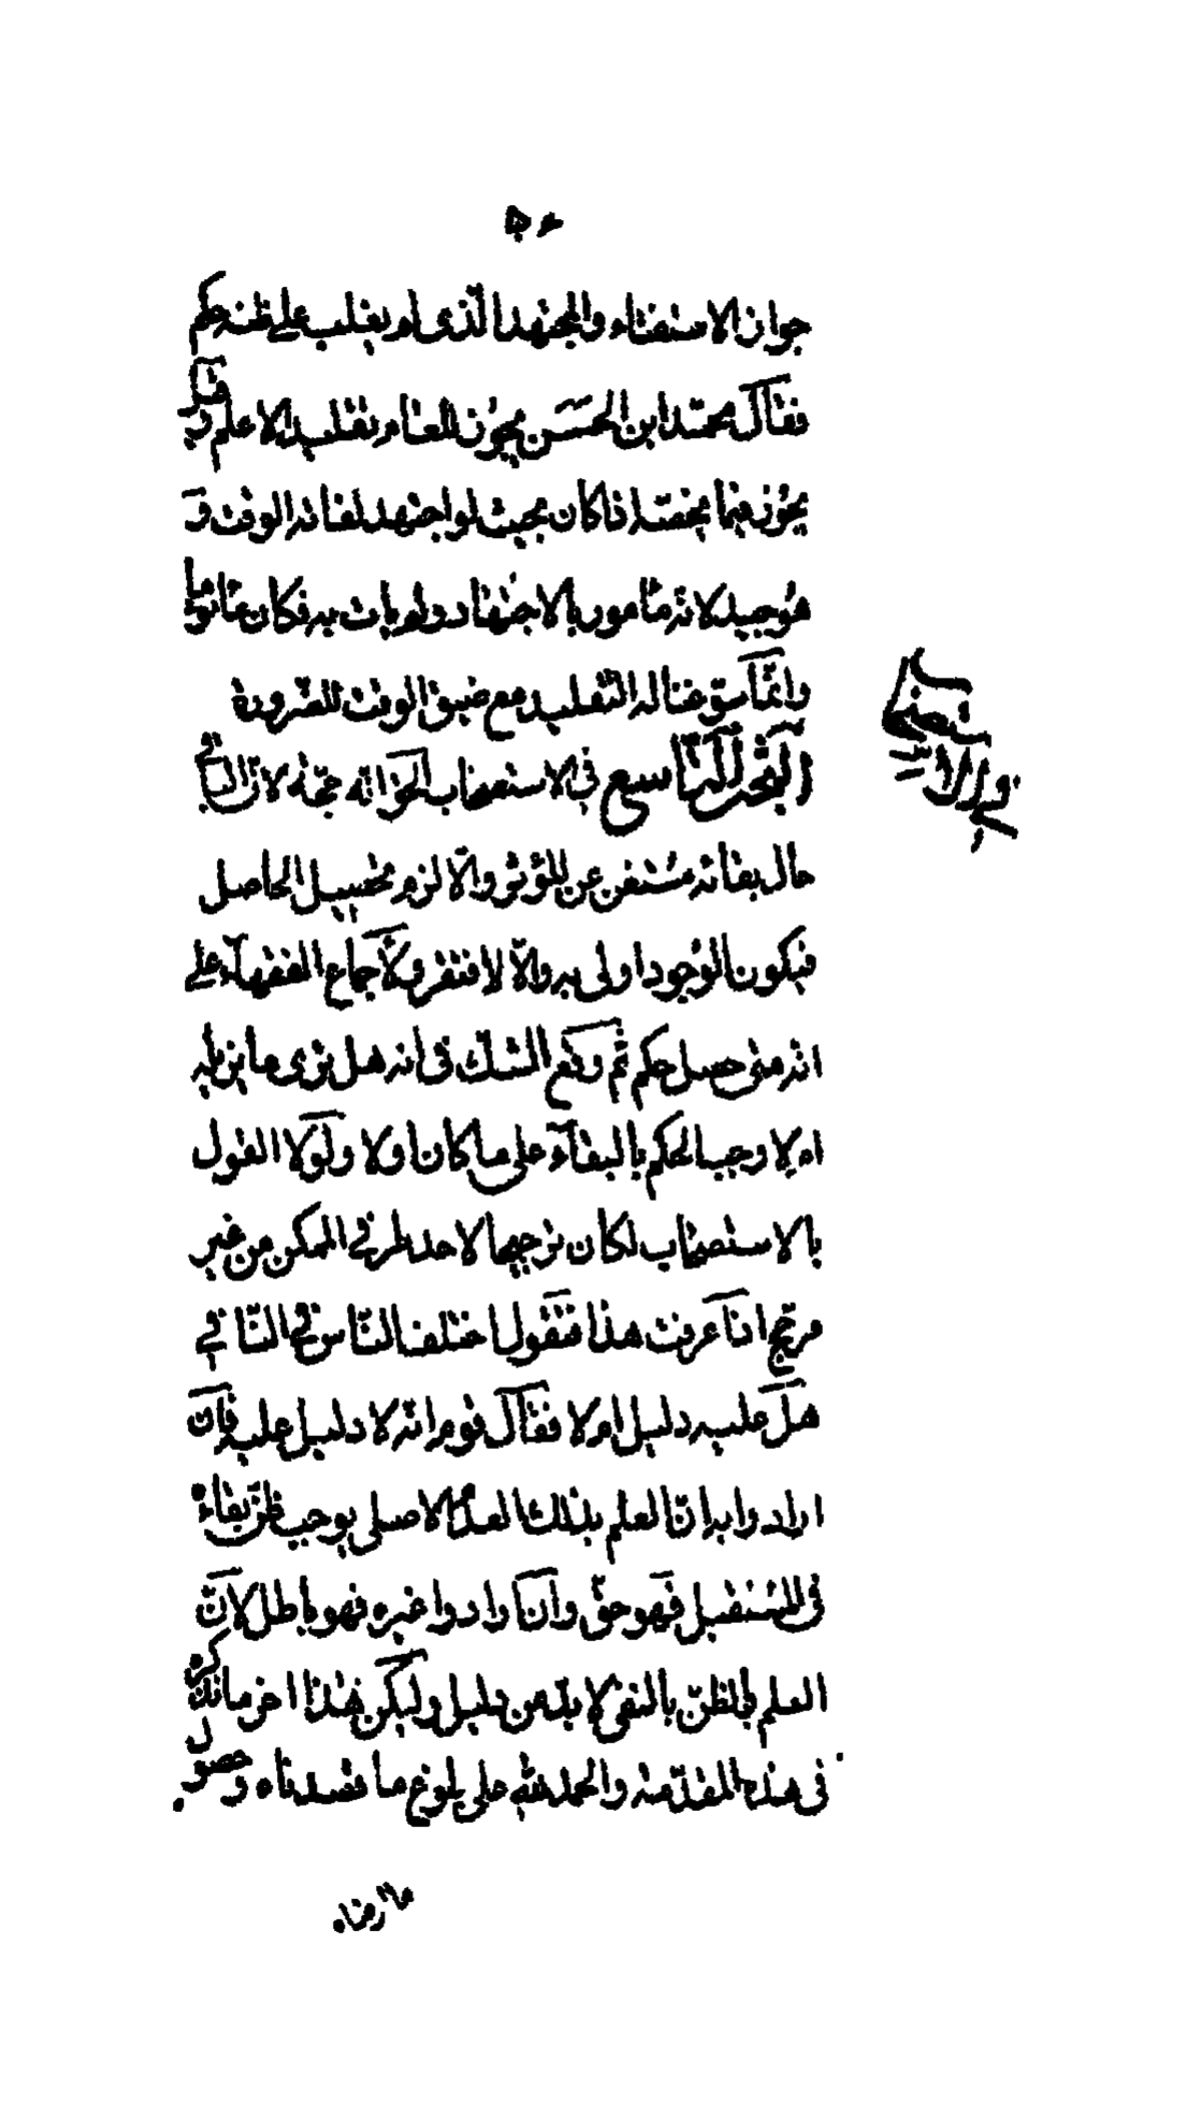 جواز الاستفتاء والمجتهد الّذى لم يغلب على ظنه حكم
فقال محمّد ابن الحسن يجوز للعالم تقليد الاعلم وقيل
يجوز فيما يخصّه اذا كان بحيث لو اجتهد لفاته الوقت و
هو جيد لانّه مأمور بالاجتهاد ولم يات به فكان مأثوما
وانّما سوّغنا له التقليد مع ضيق الوقت للضّرورة
البحث التّاسع فى الاستصحاب الحقّ انّه حجّة لانّ الباقى
حال بقائه مستغن عن المؤثر والّا لزم تحصيل الحاصل
فيكون الوجود اولى به والّا لافتقر ولاجماع الفقهآء على
انّه متى حصل حكم ثمّ وقع الشك فى انه هل طرى ما يزيله
ام لا وجب الحكم بالبقآء على ما كان اولا ولولا القول
بالاستصحاب لكان ترجيحا لاحد طرفى الممكن من غير
مرجّح اذا عرفت هذا فنقول اختلف النّاس فى النّافى
هل عليه دليل ام لا فقال قوم انّه لا دليل عليه فان
ارادوا به انّ العلم بذلك العدم الاصلى يوجب ظنّ بقاءه
فى المستقبل فهو حقّ وان ارادوا غيره فهو باطل لانّ
العلم او الظنّ بالنفى لا بدّ من دليل وليكن هذا اخر ما نذكره
فى هذه المقدّمة والحمد لله على بلوغ ما قصدناه وحصول
ما اردناه